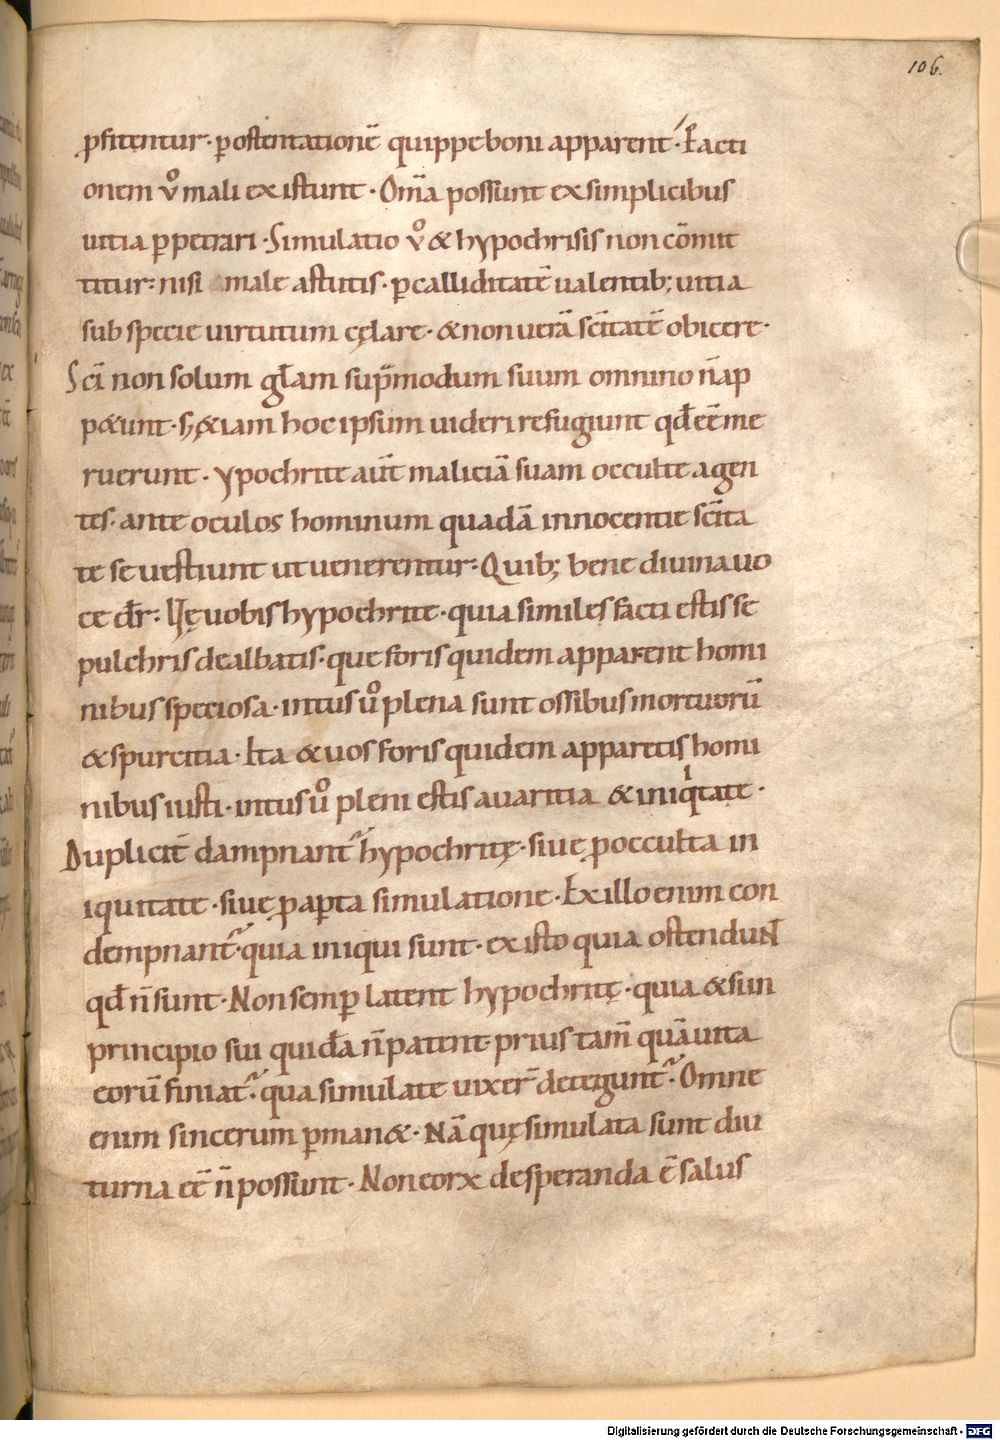 106.
ꝓfitentur· ꝑ ostentationē quippe boni apparent· Ꝑ acti
onem ỏ mali existunt· Om̄a possunt ex simplicibus
uitia ꝑpetrari· Simulatio ỏ & hypochrisis non cōmit
titur: nisi male astutis· ꝑ calliditatē ualentib; uitia
sub specie uirtutum cęlare· & non uerā sc̄itatē obicere·
Sc̄i non solum glam sup̄ modum suum omnino n̄ ap
p&unt· s; &iam hoc ipsum uideri refugiunt qđ eē me
ruerunt· ypochrite aut̄ maliciā suam occulte agen
tes· ante oculos hominum quadā innocentie sc̄ita
te se uestiunt ut uenerentur: Quib; bene diuina uo
ce dr̄: Uę uobis hypochrite· quia similes facti estis se
pulchris dealbatis· que foris quidem apparent homi
nibus speciosa· intus ů plena sunt ossibus mortuorū
& spurcitia· Ita & uos foris quidem apparetis homi
nibus iusti· intus ů pleni estis auaritia & iniqͥtate·
Duplicit̄ dampnant̄ hypochritę· siue ꝑ occulta in
iquitate· siue ꝑ aꝑta simulatione· Ex illo enim con
dempnant̄· quia iniqui sunt· ex isto quia ostendunt
qđ n̄ sunt· Non semꝑ latent hypochritę· quia & si in
principio sui quidā n̄ patent· prius tam̄ quā uita
eorū finiat̄· qua simulate uixer̄ detegunt̄· Omne
enim sincerum ꝑman&· Nā quę simulata sunt diu
turna eē n̄ possunt· Non eoꝝ desperanda ē salus
Digitalisierung gefördert durch die Deutsche Forschungsgemeinschaft - DFG